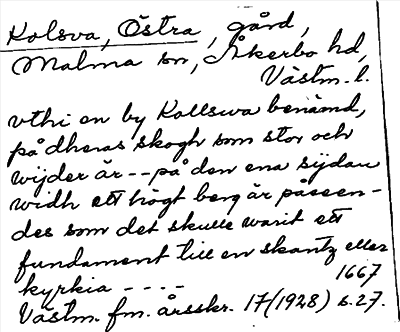 Kolsva, Östra, gård,
Malma sn, Åkerbo hd,
Västm. l.
vthi en by Kollswa benämd,
på dheras skogh som stor och
wijder är -- på den ena sijdan
widh ett högt berg är påseen-
des som det skulle warit ett
fundament till en skantz eller
kyrkia ---- 1667
Västm. fm. årsskr. 17(1928) s. 27.